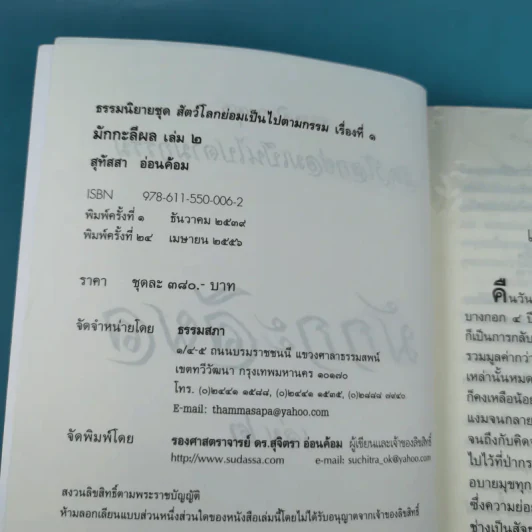 ธรรมนิยายชุด สัตว์โลกย่อมเป็นไปตามกรรม เรื่องที่ ๑
มักกะลีผล เล่ม ๒
สุทัสสา อ่อนค้อม
ISBN 978-611-550-006-2
พิมพ์ครั้งที่ ๑ ธันวาคม ๒๕๓๙
พิมพ์ครั้งที่ ๒๔ เมษายน ๒๕๕๖
ราคา ชุดละ ๓๘๐.- บาท
จัดจำหน่ายโดย ธรรมสภา
๑/๔-๕ ถนนบรมราชชนนี แขวงศาลาธรรมสพน์
เขตทวีวัฒนา กรุงเทพมหานคร ๑๐๑๗๐
โทร. (๐)๒๔๔๑ ๑๕๘๘, (๐)๒๔๔๑ ๑๕๓๕, (๐)๒๘๘๘ ๗๙๔๐
E-mail: thammasapa@yahoo.com
จัดพิมพ์โดย รองศาสตราจารย์ ดร.สุจิตรา อ่อนค้อม ผู้เขียนและเจ้าของลิขสิทธิ์
http://www.sudassa.com e-mail: suchitra_ok@yahoo.com
สงวนลิขสิทธิ์ตามพระราชบัญญัติ
ห้ามลอกเลียนแบบส่วนหนึ่งส่วนใดของหนังสือเล่มนี้โดยไม่ได้รับอนุญาตจากเจ้าของลิขสิทธิ์
คืนวัน
บางกอก ๔ ปี
ก็เป็นการกลับ
รวมมูลค่ากว่า
เหล่านั้นหมด
ก็คงเหลือน้อย
แงมจนกลาย
จนถึงกับคิด
ไปไว้ที่ป่า
อบายมุขทุก
ซึ่งความย่อ
ช่างเป็นสัจ